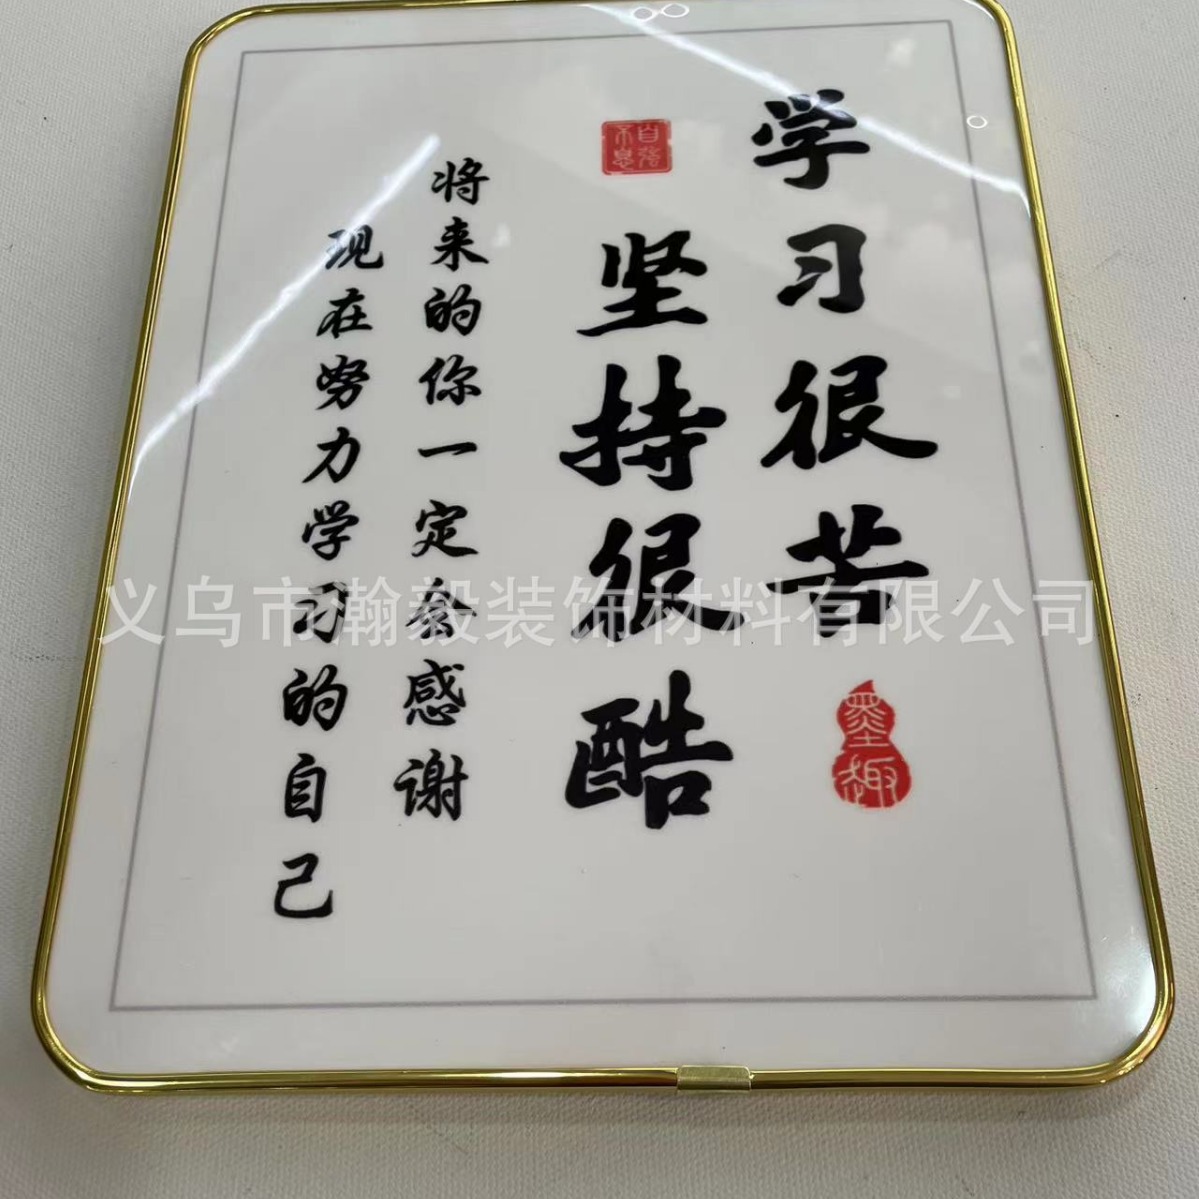 学习很苦
坚持很酷
将来的你一定会感谢
现在努力学习的自己
自强不息
墨趣
义乌市瀚毅装饰材料有限公司